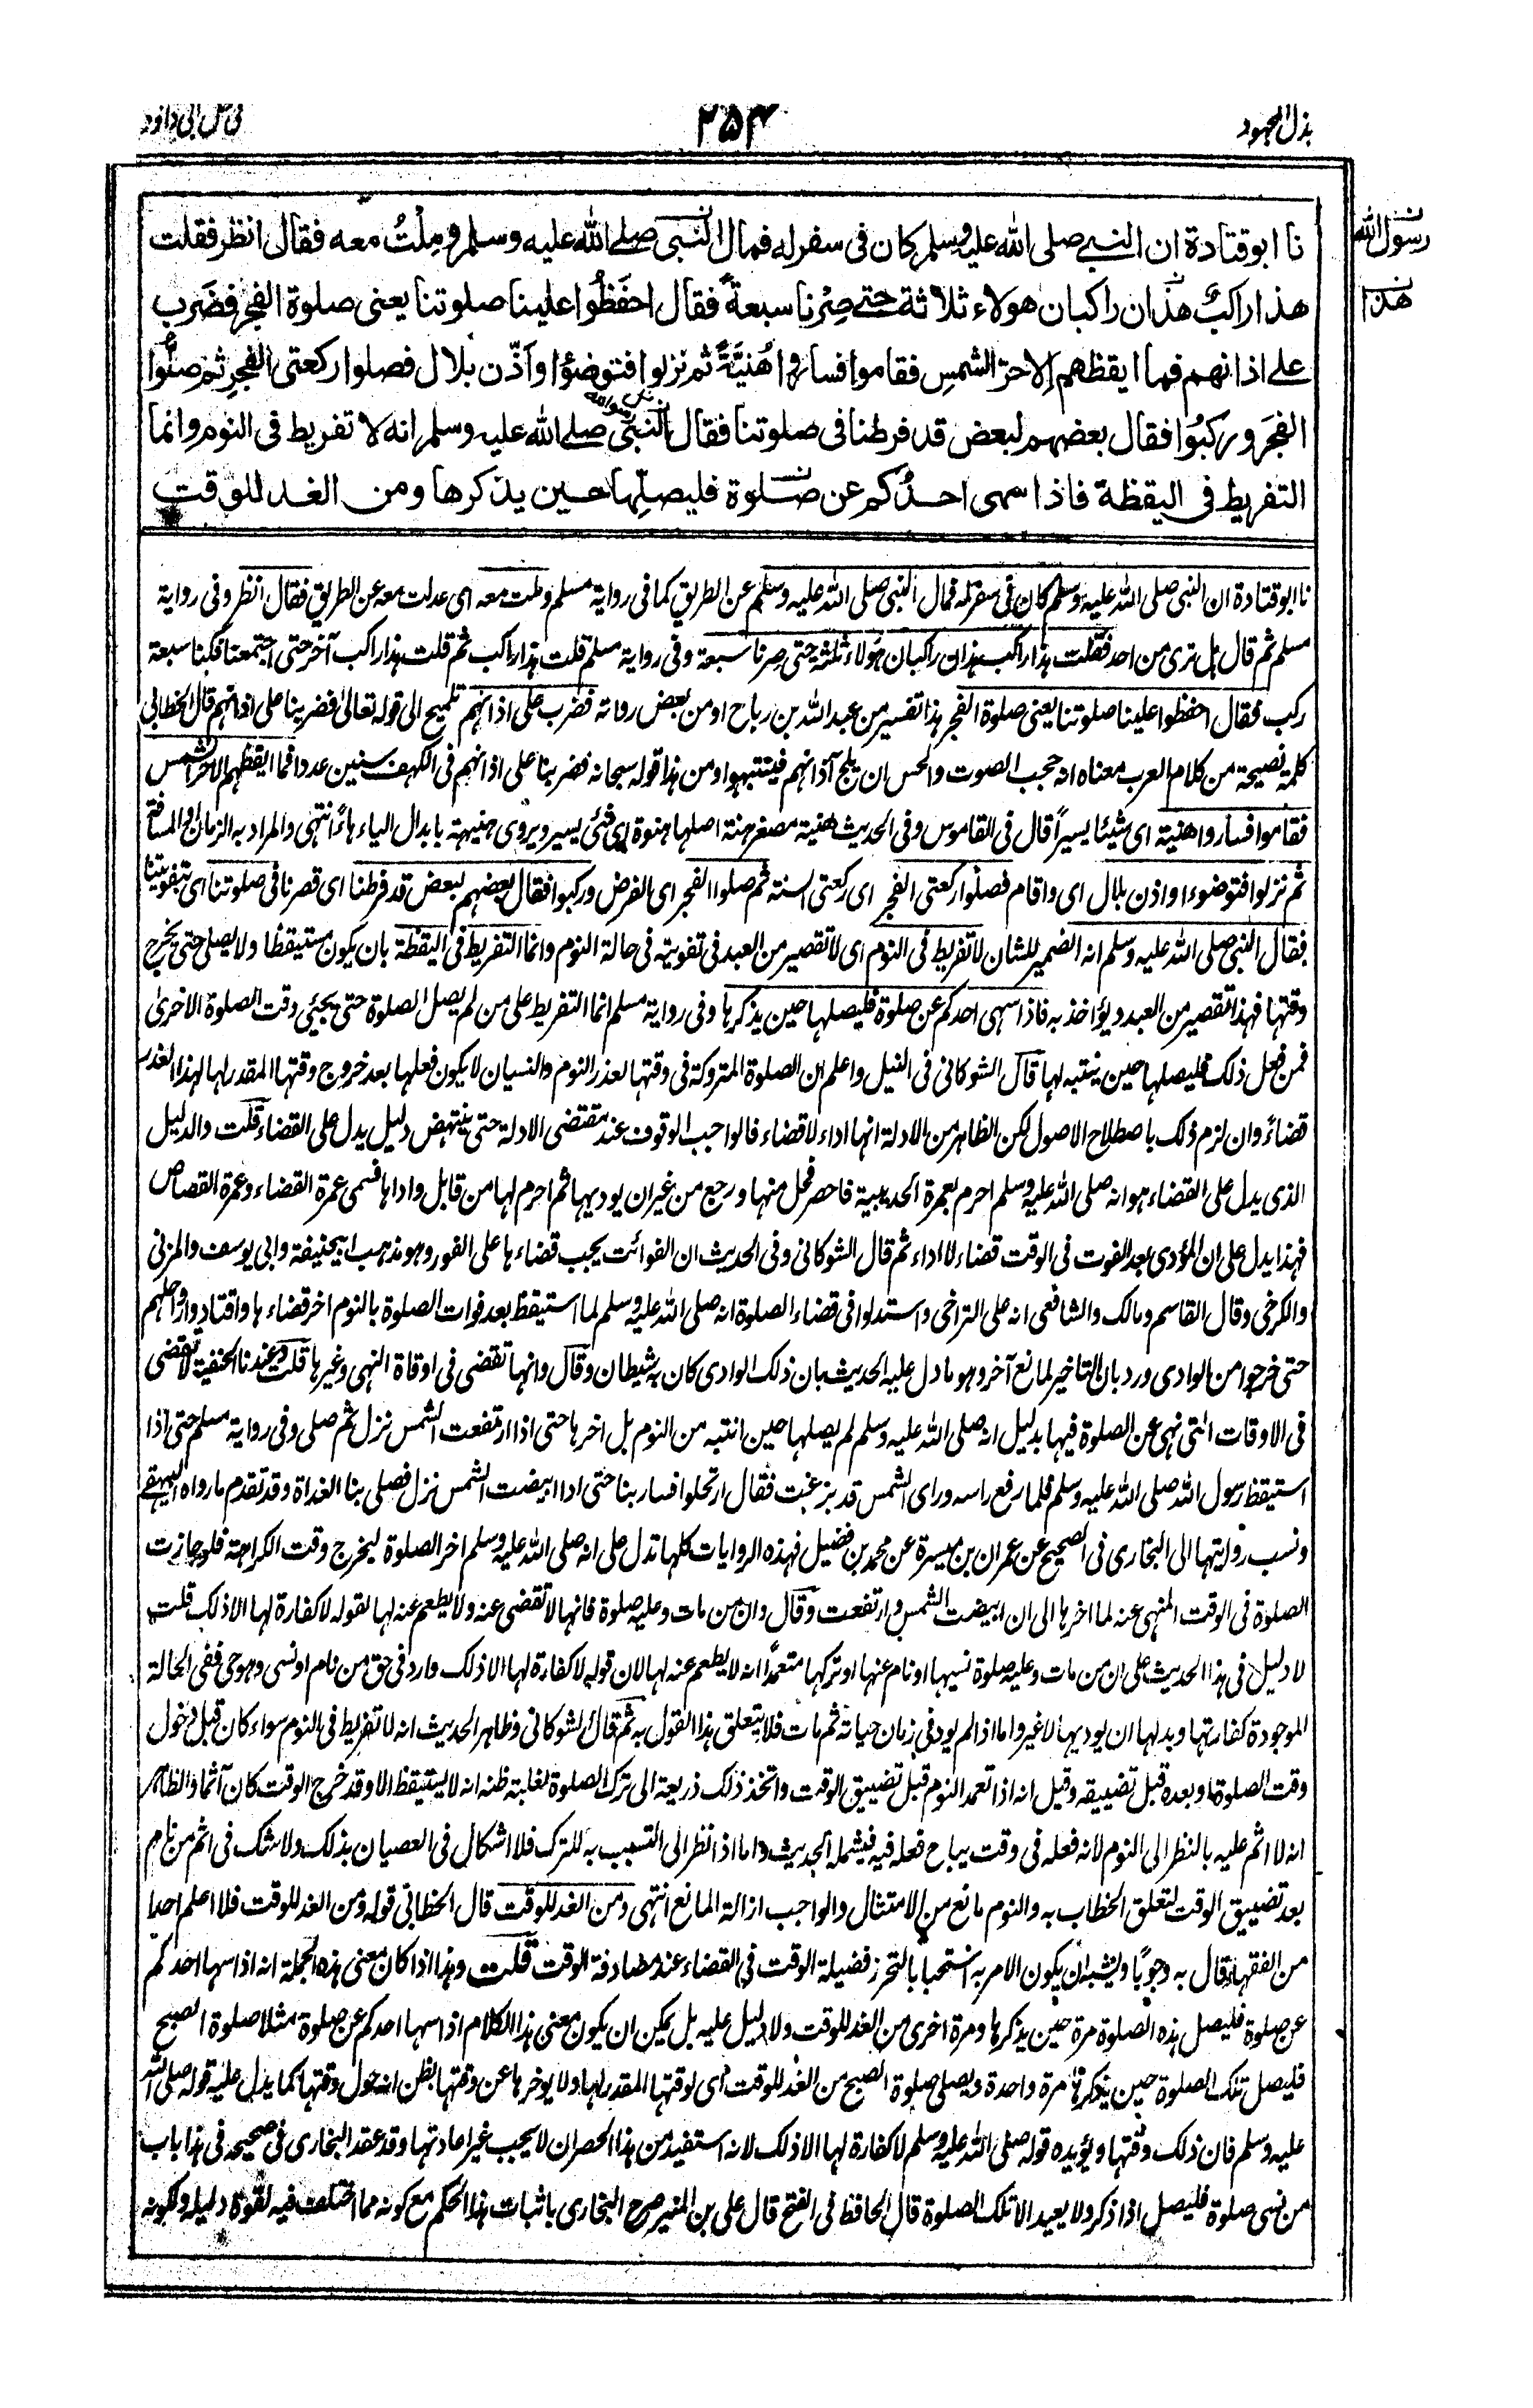 بذل المجهود
٢٥٤
فى حل ابى داؤد
نا ابوقتادة ان النبى صلى الله عليه وسلم كان فى سفر له فمال النبى صلى الله عليه وسلم ومِلْتُ معه فقال انظر فقلت
رسول الله
هذا راكبٌ هذان راكبان هولاء ثلاثة حتى صِرْنا سبعةً فقال احفَظُوا علينا صلوتنا يعنى صلوة الفجر فضَرب
هذا
على اذانهم فما ايقظهم الا حرّ الشمسِ فقاموا فساروا هُنيَّةً ثم نزلوا فتوضؤا واَذّن بلال فصلوا ركعتى الفجرِ ثم صلُّوا
الفجَر وركبُوا فقال بعضهم لبعض قد فرطنا فى صلوتنا فقال النبى صلى الله عليه وسلم انه لا تفريط فى النوم وانما
التفريط فى اليقظة فاذا سهى احدُكم عن صلوة فليصلِّها حين يذكرها ومن الغد للوقت
نا ابوقتادة ان النبى صلى الله عليه وسلم كان فى سفر له فمال النبى صلى الله عليه وسلم عن الطريق كما فى رواية مسلم وملت معه اى عدلت معه عن الطريق فقال انظر وفى رواية
مسلم ثم قال هل ترى من احد فقلت هذا راكب هذان راكبان هؤلاء ثلثة حتى صرنا سبعة وفى رواية مسلم قلت هذا راكب ثم قلت هذا راكب آخر حتى اجتمعنا فكنا سبعة
ركب فقال احفظوا علينا صلوتنا يعنى صلوة الفجر هذا تفسير من عبد الله بن رباح او من بعض رواته فضرب على اذانهم تلميح الى قوله تعالى فضربنا على اذانهم قال الخطابى
كلمة فصيحة من كلام العرب معناه انه حجب الصوت والحس ان يلج آذانهم فينتبهوا ومن هذا قوله سبحانه فضربنا على اذانهم فى الكهف سنين عددا فما ايقظهم الا حر الشمس
فقاموا فساروا هنية اى شيئا يسيراً قال فى القاموس وفى الحديث هنية مصغر هنة اصلها هنوة اى شئ يسير ويروى هنيهة بابدال الياء هاءً انتهى والمراد به الزمان او المسافة
ثم نزلوا فتوضوءا واذن بلال اى واقام فصلوا ركعتى الفجر اى ركعتى السنة ثم صلوا الفجر اى الفرض وركبوا فقال بعضهم لبعض قد فرطنا اى قصرنا فى صلوتنا اى بتفويتنا
فقال النبى صلى الله عليه وسلم انه الضمير للشان لا تفريط فى النوم اى لا تقصير من العبد فى تفويته فى حالة النوم وانما التفريط فى اليقظة بان يكون مستيقظا ولا يصلى حتى يخرج
وقتها فهذا تقصير من العبد ويؤاخذ به فاذا سهى احدكم عن صلوة فليصلها حين يذكرها وفى رواية مسلم انما التفريط على من لم يصل الصلوة حتى يجيئ وقت الصلوة الاخرى
فمن فعل ذلك فليصلها حين ينتبه لها قال الشوكانى فى النيل واعلم ان الصلوة المتروكة فى وقتها لعذر النوم والنسيان لا يكون فعلها بعد خروج وقتها المقدر لها لهذا العذر
قضاءً وان لزم ذلك باصطلاح الاصول لكن الظاهر من الادلة انها اداء لا قضاء فالواجب الوقوف عند مقتضى الادلة حتى ينتهض دليل يدل على القضاء قلت والدليل
الذى يدل على القضاء هو انه صلى الله عليه وسلم احرم بعمرة الحديبية فاحصر فحل منها ورجع من غير ان يوديها ثم احرم لها من قابل واداها فسمى عمرة القضاء وعمرة القصاص
فهذا يدل على ان المؤدى بعد الفوت فى الوقت قضاء لا اداء ثم قال الشوكانى وفى الحديث ان الفوائت يجب قضاءها على الفور وهو مذهب ابيحنيفة وابى يوسف والمزنى
والكرخى وقال القاسم ومالك والشافعى انه على التراخى واستدلوا فى قضاء الصلوة انه صلى الله عليه وسلم لما استيقظ بعد فوات الصلوة بالنوم اخر قضاءها واقتادوا رواحلهم
حتى خرجوا من الوادى ورد بان التاخير لمانع آخر وهو ما دل عليه الحديث بان ذلك الوادى كان به شيطان وقال وانها تقضى فى اوقاة النهى وغيرها قلت وعندنا الحنفية لا تقضى
فى الاوقات التى نهى عن الصلوة فيها بدليل انه صلى الله عليه وسلم لم يصلها حين انتبه من النوم بل اخرها حتى اذا ارتفعت الشمس نزل ثم صلى وفى رواية مسلم حتى اذا
استيقظ رسول الله صلى الله عليه وسلم فلما رفع راسه وراى الشمس قد بزغت فقال ارتحلوا فسار بنا حتى اذا ابيضت الشمس نزل فصلى بنا الغداة وقد تقدم ما رواه البيهقى
ونسب روايتها الى البخارى فى الصحيح عن عمران بن ميسرة عن محمد بن فضيل فهذه الروايات كلها تدل على انه صلى الله عليه وسلم اخر الصلوة ليخرج وقت الكراهة فلو جازت
الصلوة فى الوقت المنهى عنه لما اخرها الى ان ابيضت الشمس وارتفعت وقال وان من مات وعليه صلوة فانها لا تقضى عنه ولا يطعم عنه لها لقوله لا كفارة لها الا ذلك قلت
لا دليل فى هذا الحديث على ان من مات وعليه صلوة نسيها او نام عنها او تركها متعمداً انه لا يطعم عنه لها لان قوله لا كفارة لها الا ذلك وارد فى حق من نام او نسى وهو حى ففى الحالة
الموجودة كفارتها وبدلها ان يوديها لا غير واما اذا لم يود فى زمان حياته ثم مات فلا يتعلق هذا القول به ثم قال الشوكانى وظاهر الحديث انه لا تفريط فى النوم سواء كان قبل دخول
وقت الصلوة او بعده قبل تضييقه وقيل انه اذا تعمد النوم قبل تضييق الوقت واتخذ ذلك ذريعة الى ترك الصلوة لغلبة ظنه انه لا يستيقظ الا وقد خرج الوقت كان آثما والظاهر
انه لا اثم عليه بالنظر الى النوم لانه فعله فى وقت يباح فعله فيه فيشمله الحديث واما اذا نظر الى التسبب به للترك فلا اشكال فى العصيان بذلك ولا شك فى اثم من نام
بعد تضييق الوقت لتعلق الخطاب به والنوم مانع من الامتثال والواجب ازالة المانع انتهى ومن الغد للوقت قال الخطابى قوله ومن الغد للوقت فلا اعلم احدا
من الفقهاء قال به وجوبًا ويشبه ان يكون الامر به استحبابا لتحرز فضيلة الوقت فى القضاء عند مصادفة الوقت قلت وهذا اذا كان معنى هذه الجملة انه اذا سها احدكم
عن صلوة فليصل هذه الصلوة مرة حين يذكرها ومرة اخرى من الغد للوقت ولا دليل عليه بل يمكن ان يكون معنى هذا الكلام اذا سها احدكم عن صلوة مثلا صلوة الصبح
فليصل تلك الصلوة حين يذكرها مرة واحدة ويصلى صلوة الصبح من الغد للوقت اى لوقتها المقدر لها ولا يوخرها عن وقتها بظن انه حول وقتها كما يدل عليه قوله صلى الله
عليه وسلم فان ذلك وقتها ويؤيده قوله صلى الله عليه وسلم لا كفارة لها الا ذلك لانه استفيد من هذا الحصر ان لا يجب غير اعادتها وقد عقد البخارى فى صحيحه فى هذا باب
من نسى صلوة فليصل اذا ذكر ولا يعيد الا تلك الصلوة قال الحافظ فى الفتح قال على بن المنير صرح البخارى باثبات هذا الحكم مع كونه مما اختلف فيه لقوة دليله ولكونه